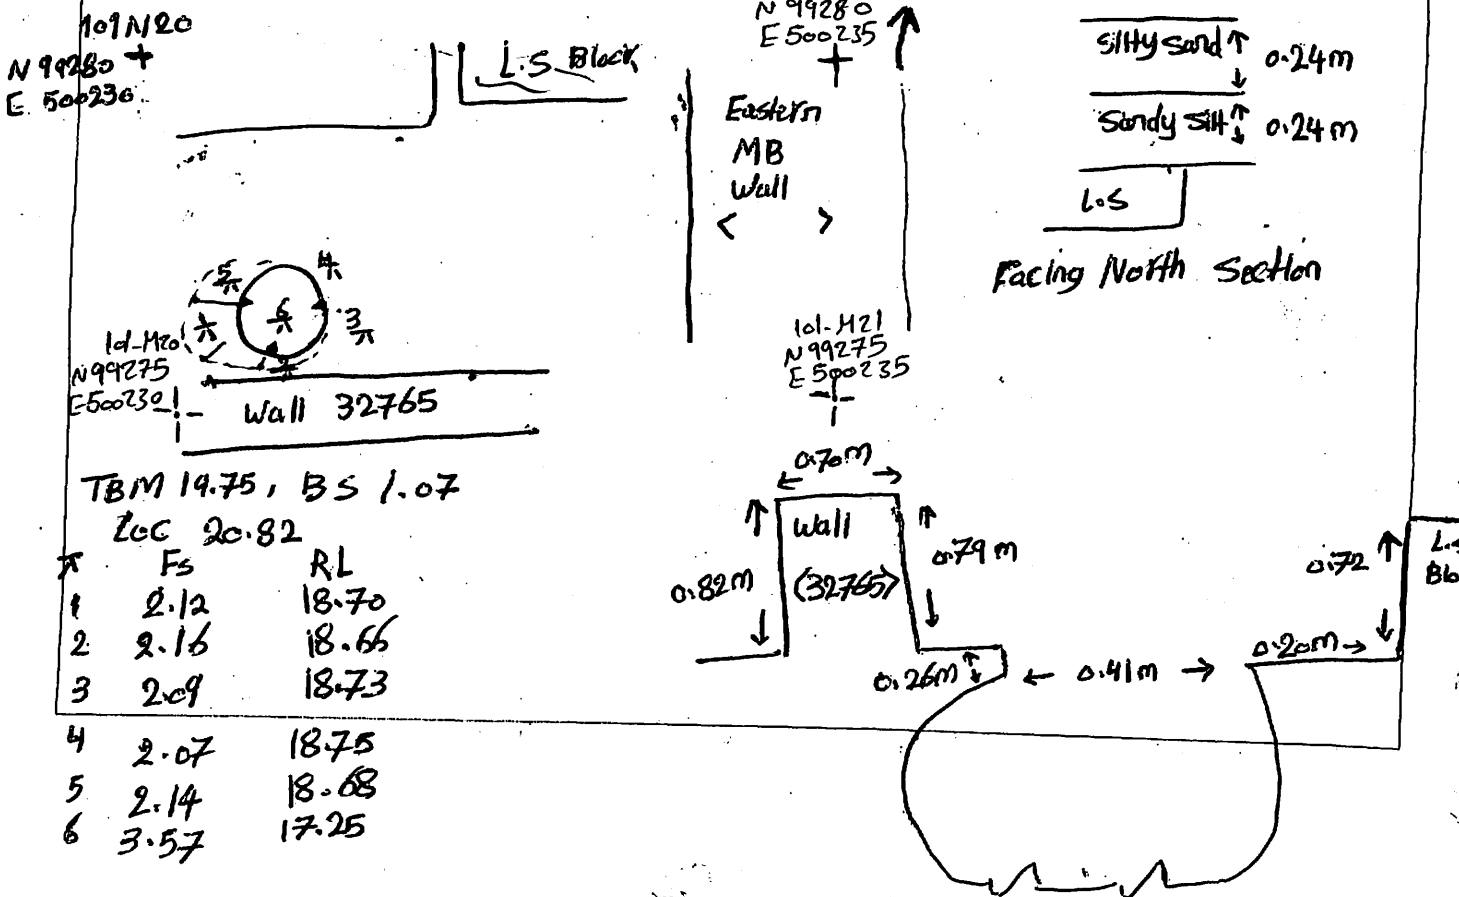 101N/20
N 99280
E 500230
L.S Block
N 99280
E 500235
Eastern
MB
Wall
Silty Sand 0.24m
Sandy Silt 0.24m
L.S
Facing North Section
5
4
6
3
1
2
101-M20
N 99275
E500230
Wall 32765
101-M21
N 99275
E 500235
TBM 19.75, BS 1.07
LOC 20.82
Fs RL
1 2.12 18.70
2 2.16 18.66
3 2.09 18.73
4 2.07 18.75
5 2.14 18.68
6 3.57 17.25
0.70m
Wall
(32765)
0.82m
0.79m
0.26m
0.41m
0.20m
0.72
L.S